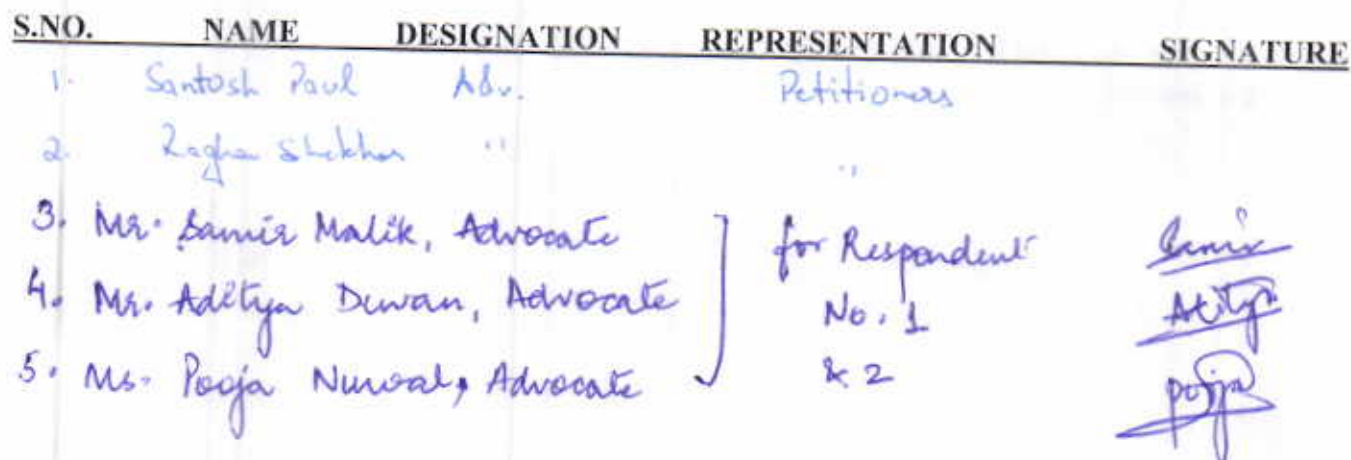 S.NO. NAME DESIGNATION REPRESENTATION SIGNATURE
1. Santosh Paul Adv. Petitioners
2. Shekhar " "
3. Mr. Samir Malik, Advocate for Respondent Samir
4. Mr. Aditya Dewan, Advocate No. 1 Aditya
5. Ms. Pooja Nuwal, Advocate & 2 pooja